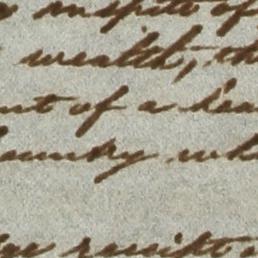 in spite of
wealth, th
nt of a hea
ountry wh
receipt